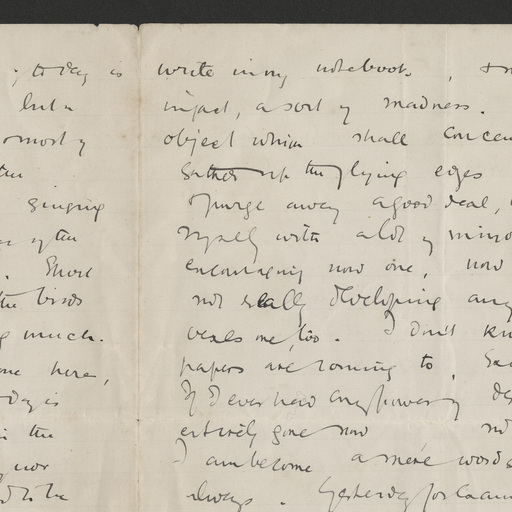 ; to day is
but a
most of
the
singing
of the
. Short
the birds
much.
me here,
day is
in the
nor
to be
write in my notebook ,
in fact, a sort of madness.
object which shall concen
Gather up the flying edges
purge away a good deal,
myself with a lot of minor
encouraging now one, now
not really developing any
me, too. I don't kn
papers are coming to.
If I ever had any power of de
entirely gone now
I am become a mere words
always . Yesterday for